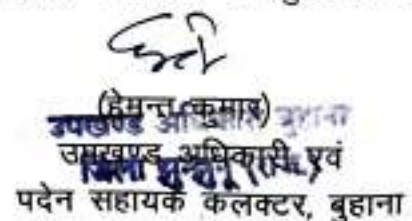 (हेमन्त कुमार)
उपखण्ड अधिकारी बुहाना
उपखण्ड अधिकारी एवं
जिला झुन्झुनू (राज.)
पदेन सहायक कलक्टर, बुहाना